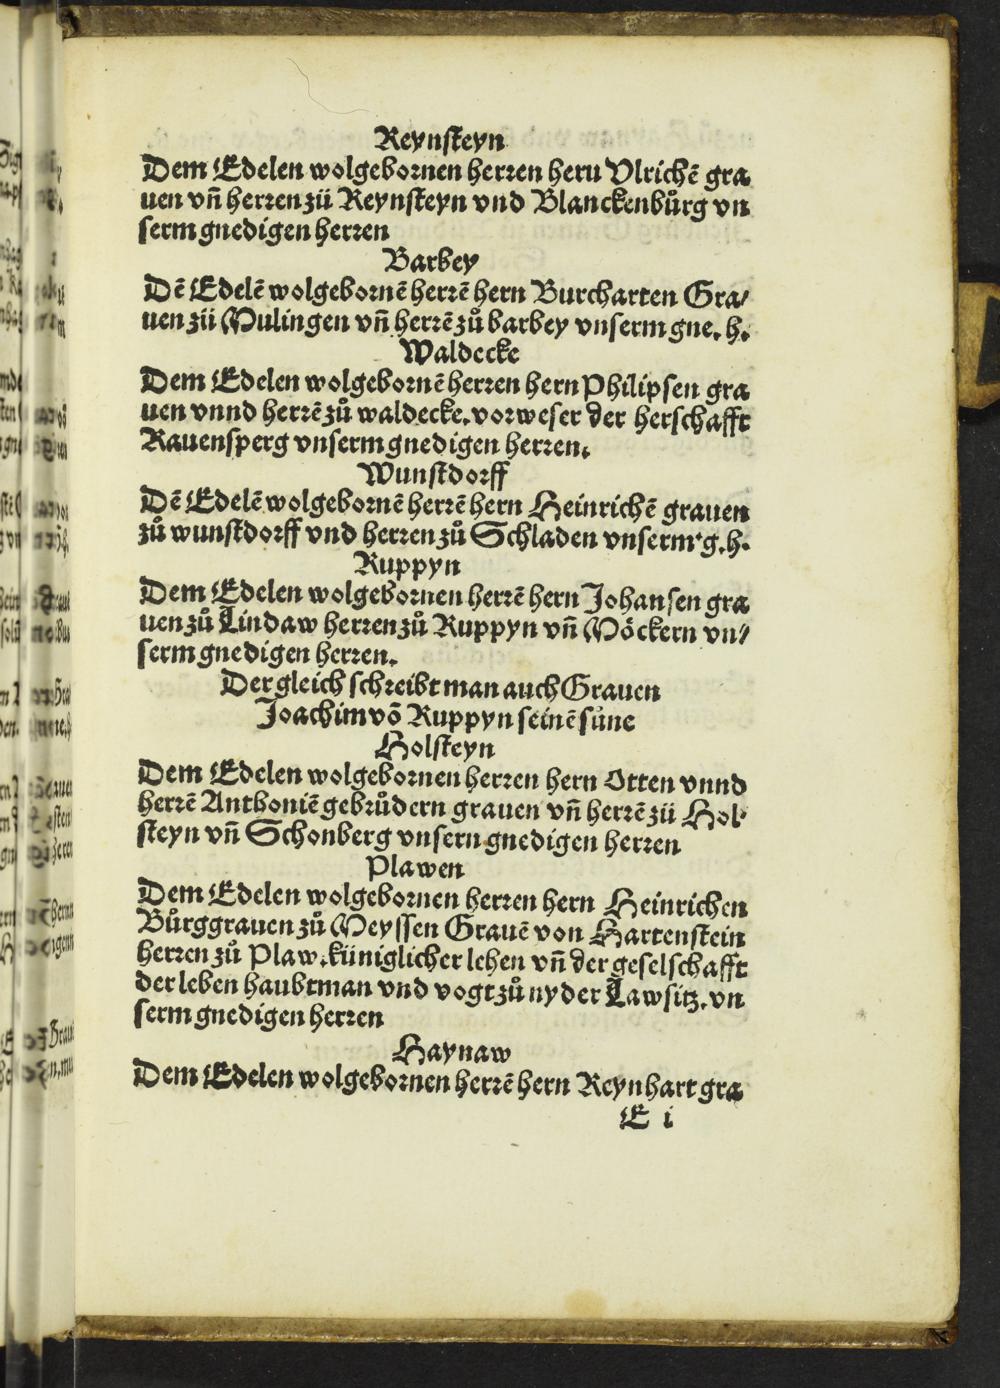 Reynsteyn
Dem Edelen wolgebornen herren heru Vlrichē gra
uen vñ herren zü Reynsteyn vnd Blanckenbůrg vn
serm gnedigen herren
Barbey
Dē Edelē wolgebornē herrē hern Burcharten Gra/
uen zü Mulingen vñ herrē zů barbey vnserm gne. h.
Waldecke
Dem Edelen wolgebornē herren hern Philipsen gra
uen vnnd herrē zů waldecke. vorweser der herschafft
Rauensperg vnserm gnedigen herren.
Wunstdorff
Dē Edelē wolgebornē herrē hern Heinrichē grauen
zů wunstdorff vnd herren zů Schladen vnserm g. h.
Ruppyn
Dem Edelen wolgebornen herrē hern Johansen gra
uen zů Lindaw herren zů Ruppyn vñ Möckern vn/
serm gnedigen herren.
Dergleich schreibt man auch Grauen
Joachim võ Ruppyn seinē süne
Holsteyn
Dem Edelen wolgebornen herren hern Otten vnnd
herrē Anthoniē gebrůdern grauen vñ herrē zü Hol-
steyn vñ Schonberg vnsern gnedigen herren
Plawen
Dem Edelen wolgebornen herren hern Heinrichen
Bůrggrauen zů Meyssen Grauē von Hartenstein
herren zů Plaw. küniglicher lehen vñ der geselschafft
der leben haubtman vnd vogt zů nyder Lawsitz. vn
serm gnedigen herren
Haynaw
Dem Edelen wolgebornen herrē hern Reynhart gra
E i